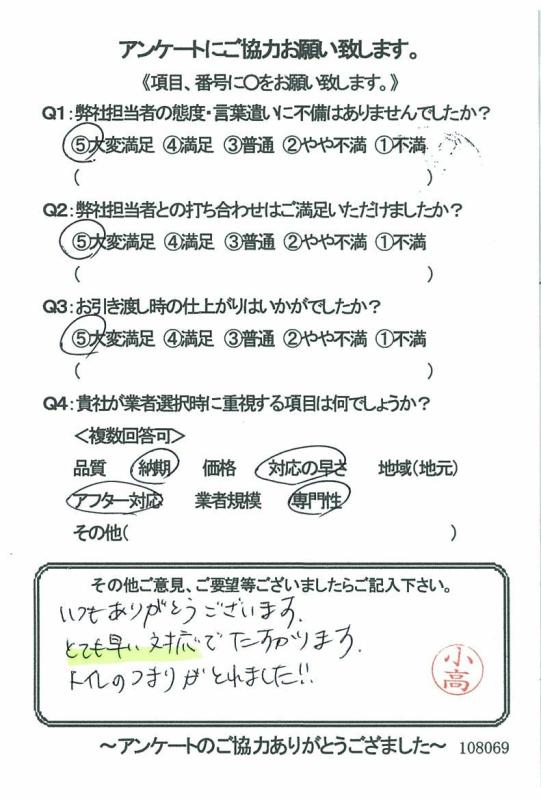 アンケートにご協力お願い致します。
《項目、番号に○をお願い致します。》
Q1:弊社担当者の態度・言葉遣いに不備はありませんでしたか?
⑤大変満足 ④満足 ③普通 ②やや不満 ①不満
( )
Q2:弊社担当者との打ち合わせはご満足いただけましたか?
⑤大変満足 ④満足 ③普通 ②やや不満 ①不満
( )
Q3:お引き渡し時の仕上がりはいかがでしたか?
⑤大変満足 ④満足 ③普通 ②やや不満 ①不満
( )
Q4:貴社が業者選択時に重視する項目は何でしょうか?
<複数回答可>
品質 納期 価格 対応の早さ 地域(地元)
アフター対応 業者規模 専門性
その他( )
その他ご意見、ご要望等ございましたらご記入下さい。
いつもありがとうございます。
とても早い対応でたすかります。
トイレのつまりがとれました!!
小高
~アンケートのご協力ありがとうござました~ 108069